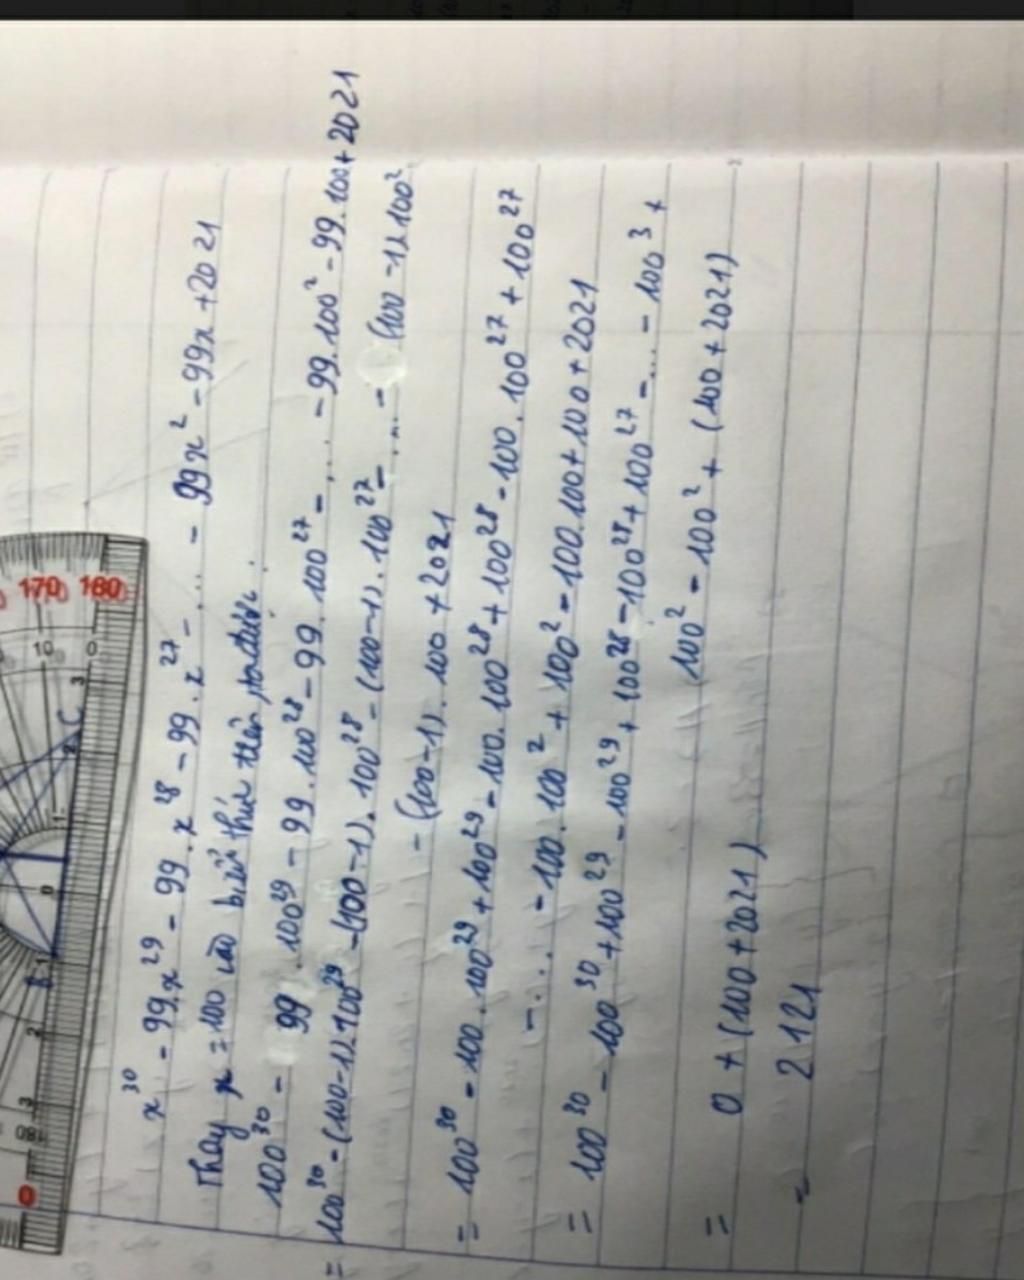 x³⁰ - 99.x²⁹ - 99.x²⁸ - 99.x²⁷ - ... - 99x² - 99x + 2021
Thay x = 100 vào biểu thức trên, ta được:
100³⁰ - 99.100²⁹ - 99.100²⁸ - 99.100²⁷ - ... - 99.100² - 99.100 + 2021
= 100³⁰ - (100-1).100²⁹ - (100-1).100²⁸ - (100-1).100²⁷ - ... - (100-1).100²
- (100-1).100 + 2021
= 100³⁰ - 100.100²⁹ + 100²⁹ - 100.100²⁸ + 100²⁸ - 100.100²⁷ + 100²⁷
- ... - 100.100² + 100² - 100.100 + 100 + 2021
= 100³⁰ - 100³⁰ + 100²⁹ - 100²⁹ + 100²⁸ - 100²⁸ + 100²⁷ - ... - 100³ +
100² - 100² + (100 + 2021)
= 0 + (100 + 2021)
= 2121
170 180
10 0
3 2 1 0 1 2 3
C
B
180
0